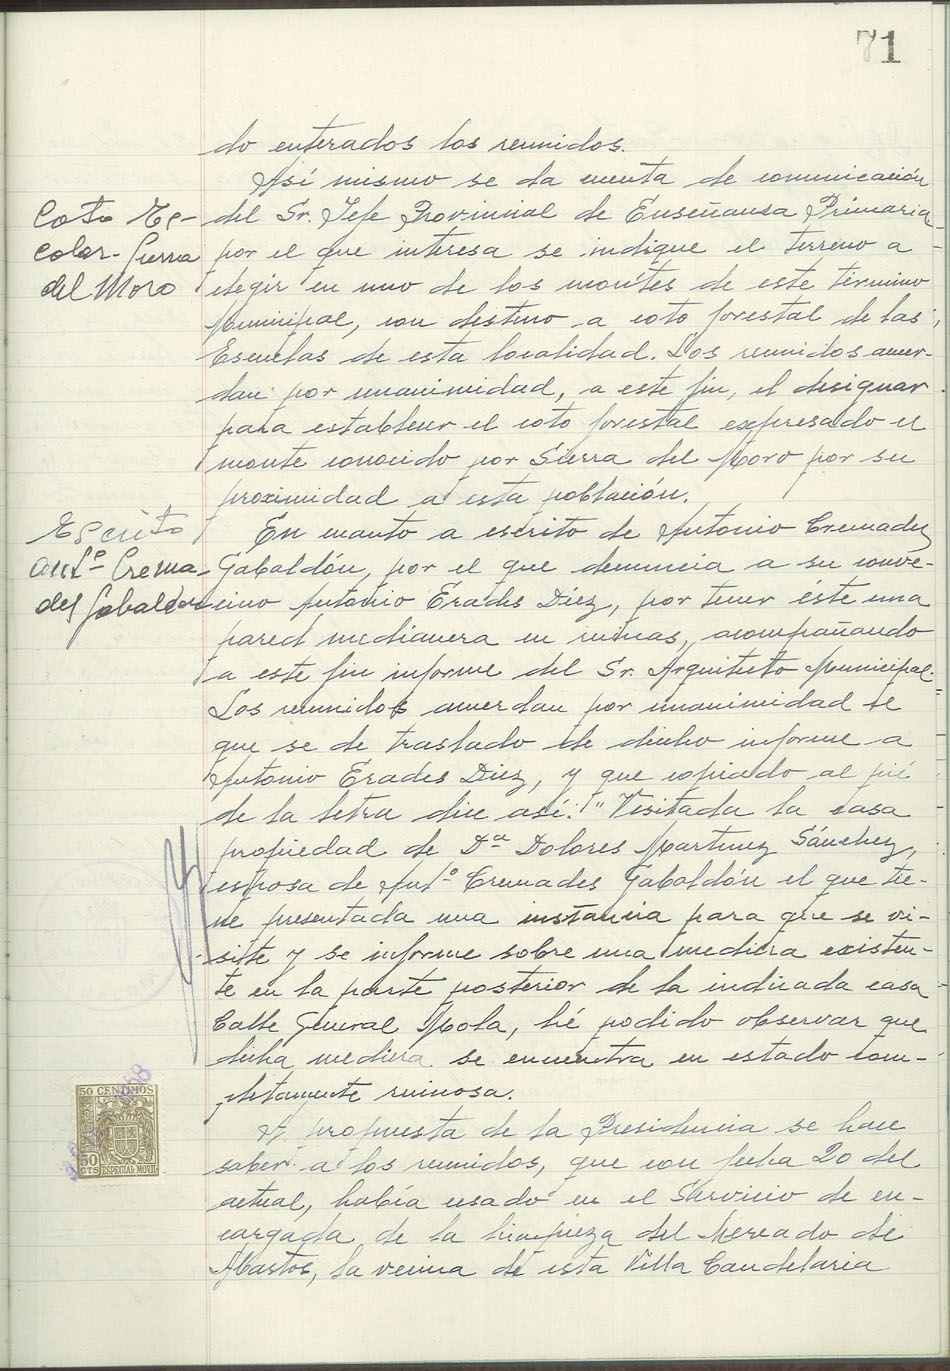 71
do enterados los reunidos.
Así mismo se da cuenta de comunicación
Coto Es-
colar-Sierra
del Moro
del Sr. Jefe Provincial de Enseñansa Primaria
por el que interesa se indique el terreno a
elegir en uno de los montes de este término
Municipal, con destino a coto forestal de las
Escuelas de esta localidad. Los reunidos acuer-
dan por unanimidad, a este fin, el designar
para establecer el coto forestal expresado el
monte conocido por Sierra del Moro por su
proximidad a esta población.
Escrito
Antº Crema-
des Gabaldón
En cuanto a escrito de Antonio Cremades
Gabaldón, por el que denuncia a su conve-
cino Antonio Erades Díez, por tener éste una
pared medianera en ruinas, acompañando
a este fin informe del Sr. Arquitecto Municipal.
Los reunidos acuerdan por unanimidad el
que se de traslado de dicho informe a
Antonio Erades Diez, y que copiado al pié
de la letra dice así: "Visitada la casa
propiedad de Dª Dolores Martinez Sánchez,
esposa de Antº Cremades Gabaldón el que tie-
ne presentada una instancia para que se vi-
site y se informe sobre una mediera existen-
te en la parte posterior de la indicada casa
Calle General Mola, hé podido observar que
dicha mediera se encuentra en estado com-
pletamente ruinosa.
A propuesta de la Presidencia se hace
saber a los reunidos, que con fecha 20 del
actual, había cesado en el Servicio de en-
cargada de la limpieza del Mercado de
Abastos, la vecina de esta Villa Candelaria
50 CENTIMOS
50
CTS
ESPECIAL MOVIL